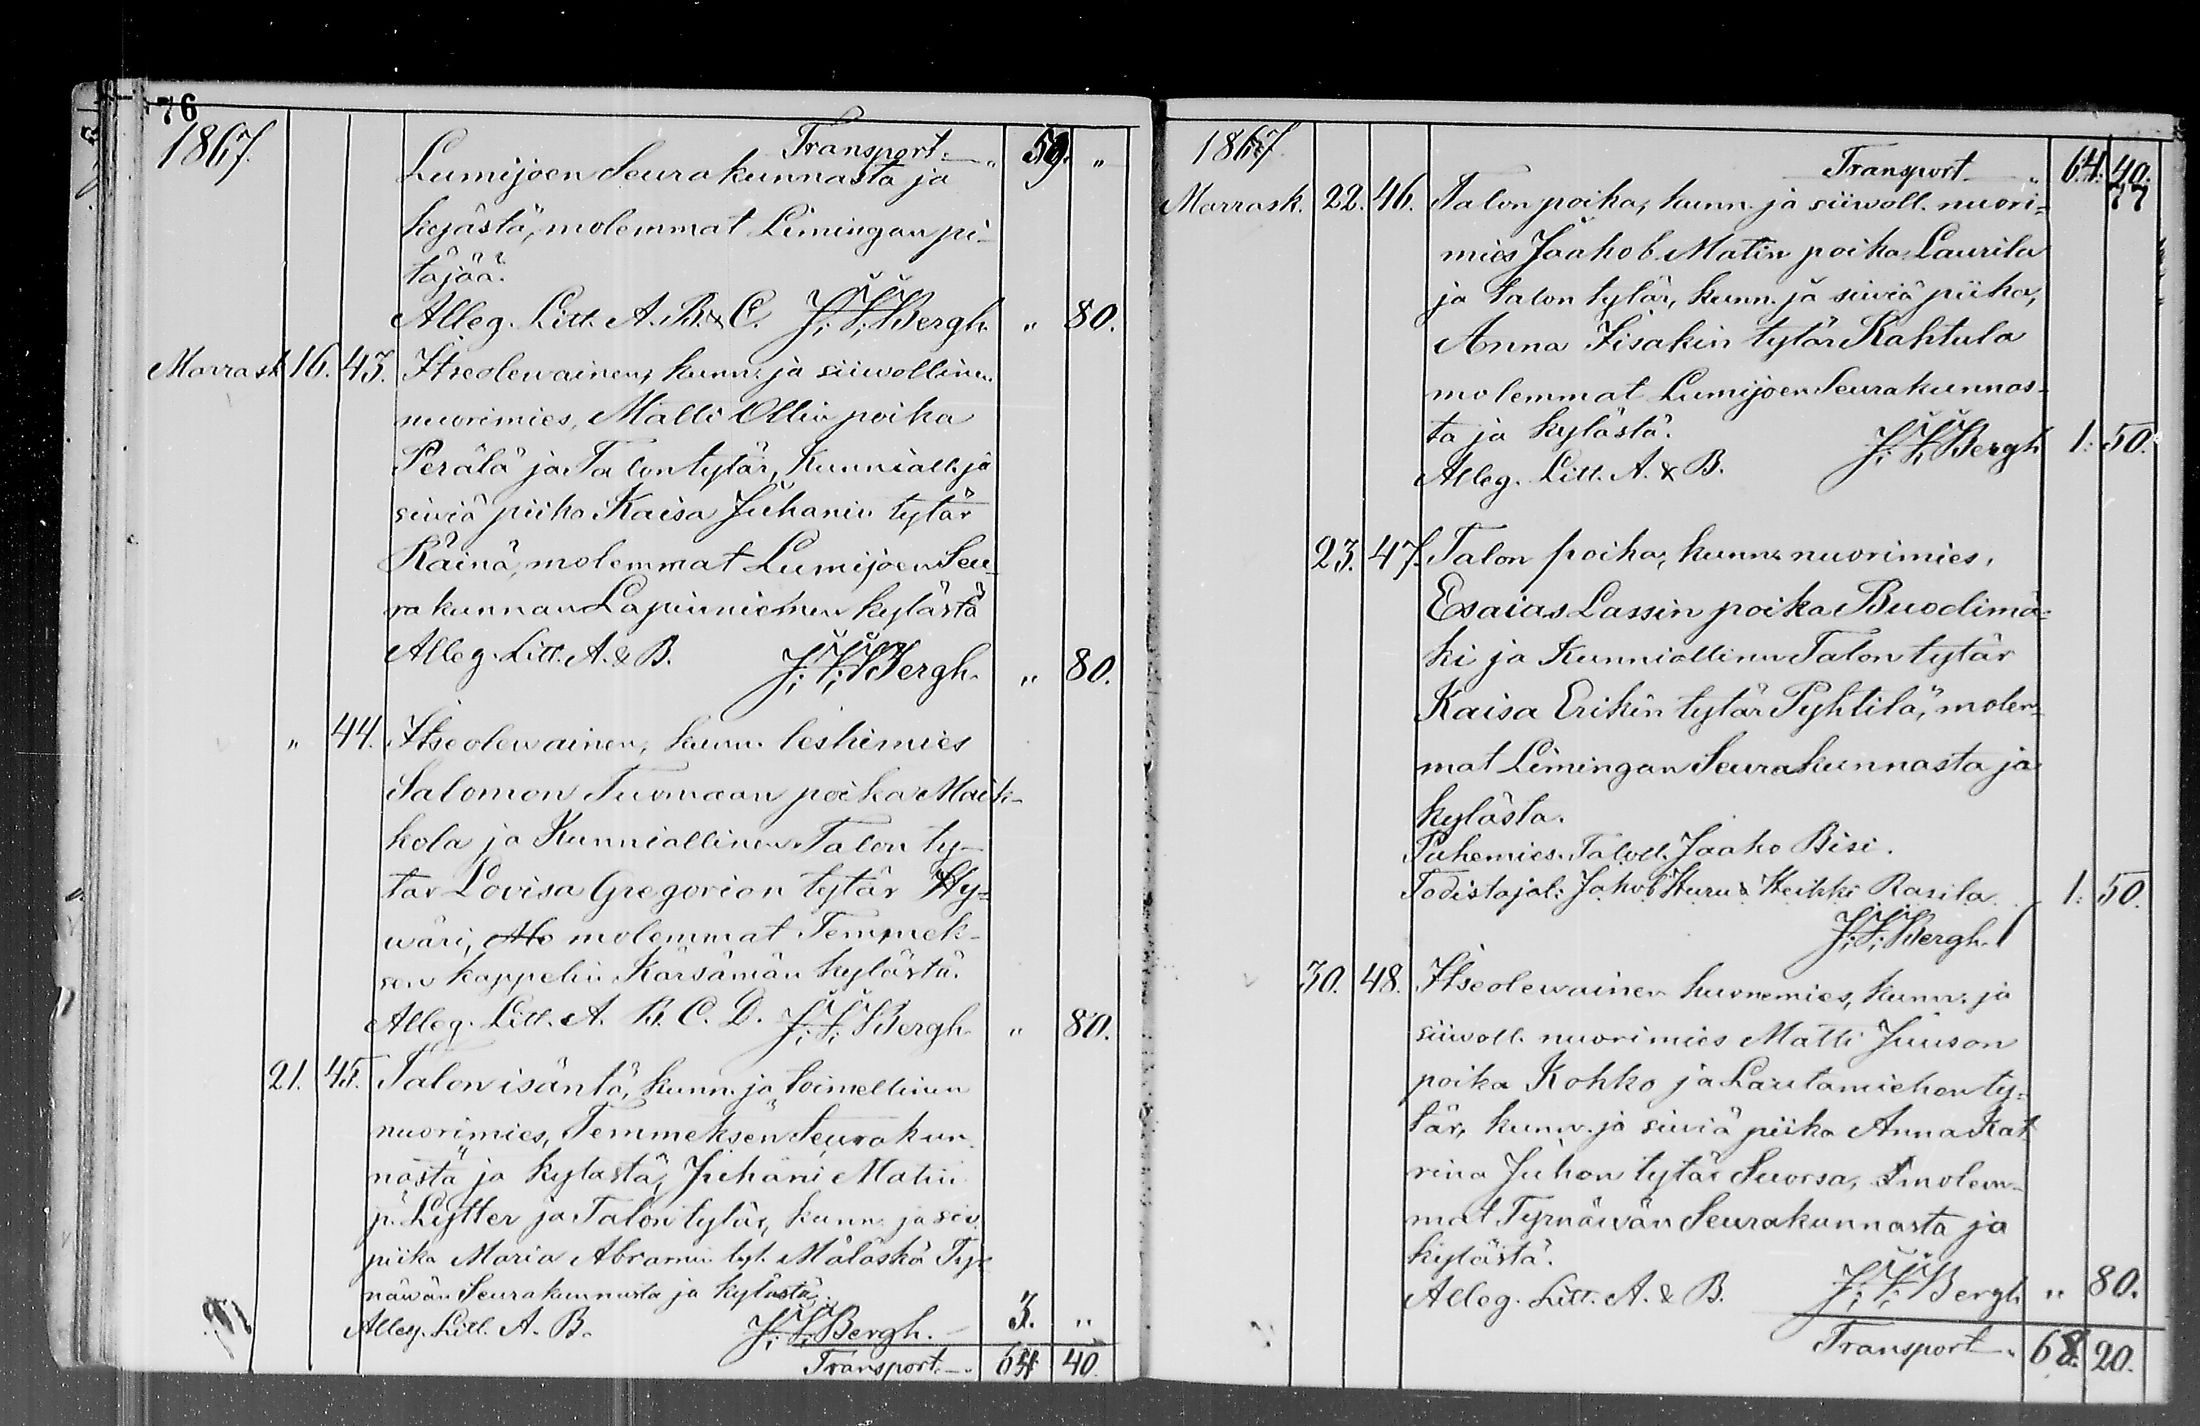 76
1867. Transport. — " 59. "
Lumijoen Seurakunnasta ja
kylästä, molemmat Limingan pi-
täjää.
Alleg. Litt. A. B. & C. J. F. Bergh. " 80.
Marrask. 16. 43. Itseolewainen, kunn. ja siiwollinen
nuorimies, Matti Ollin poika
Perälä ja Talon tytär, Kunniall. ja
siwiä piika Kaisa Juhanin tytär
Räinä, molemmat Lumijoen Seu-
rakunnan Lapinniemen kylästä
Alleg. Litt. A. & B. J. F. Bergh. " 80.
" 44. Itseolewainen, kunn. leskimies
Salomon Tuomaan poika Mat-
kola ja Kunniallinen Talon ty-
tär Lovisa Gregorion tytär Hy-
wäri, molemmat Temmek-
sen kappelin Kärsämän kylästä.
Alleg. Litt. A. B. C. D. J. F. Bergh. " 80.
21. 45. Talon isäntä, kunn. ja toimellinen
nuorimies, Temmeksen Seurakun-
nasta ja kylästä, Juhani Matin
p. Lytter ja Talon tytär, kunn. ja siv.
piika Maria Abramin tyt. Määskä Tyr-
näwän Seurakunnasta ja kylästä.
Alleg. Litt. A. B. J. F. Bergh. — 3. "
Transport. — 64 40.
1867. Transport — " 64. 40.
77
Marrask. 22. 46. Talon poika, kunn. ja siiwoll. nuori-
mies Jaakob Matin poika Laurila
ja talon tytär, kunn. ja siwiä piika,
Anna Iisakin tytär Kahtula
molemmat Lumijoen Seurakunnas-
ta ja kylästä. J. F. Bergh 1. 50.
Alleg. Litt. A. & B.
23. 47. Talon poika, kunn. nuorimies,
Esaias Lassin poika Buodimä-
ki ja Kunniallinen Talon tytär
Kaisa Erikin tytär Pyhtilä, molem-
mat Limingan Seurakunnasta ja
kylästä.
Puhemies. Taloll. Jaako Bisi.
Todistajat: Jakob Kuru & Heikki Rasila 1. 50.
J. F. Bergh.
30. 48. Itseolewainen huonemies, kunn. ja
siiwoll. nuorimies Matti Juuson
poika Kohko ja Lautamiehen ty-
tär, kunn. ja siwiä piika Anna Kat
rina Juhon tytär Suorsa, molem-
mat Tyrnäwän Seurakunnasta ja
kylästä.
Alleg. Litt. A. & B. J. F. Bergh " 80.
Transport — " 68. 20.